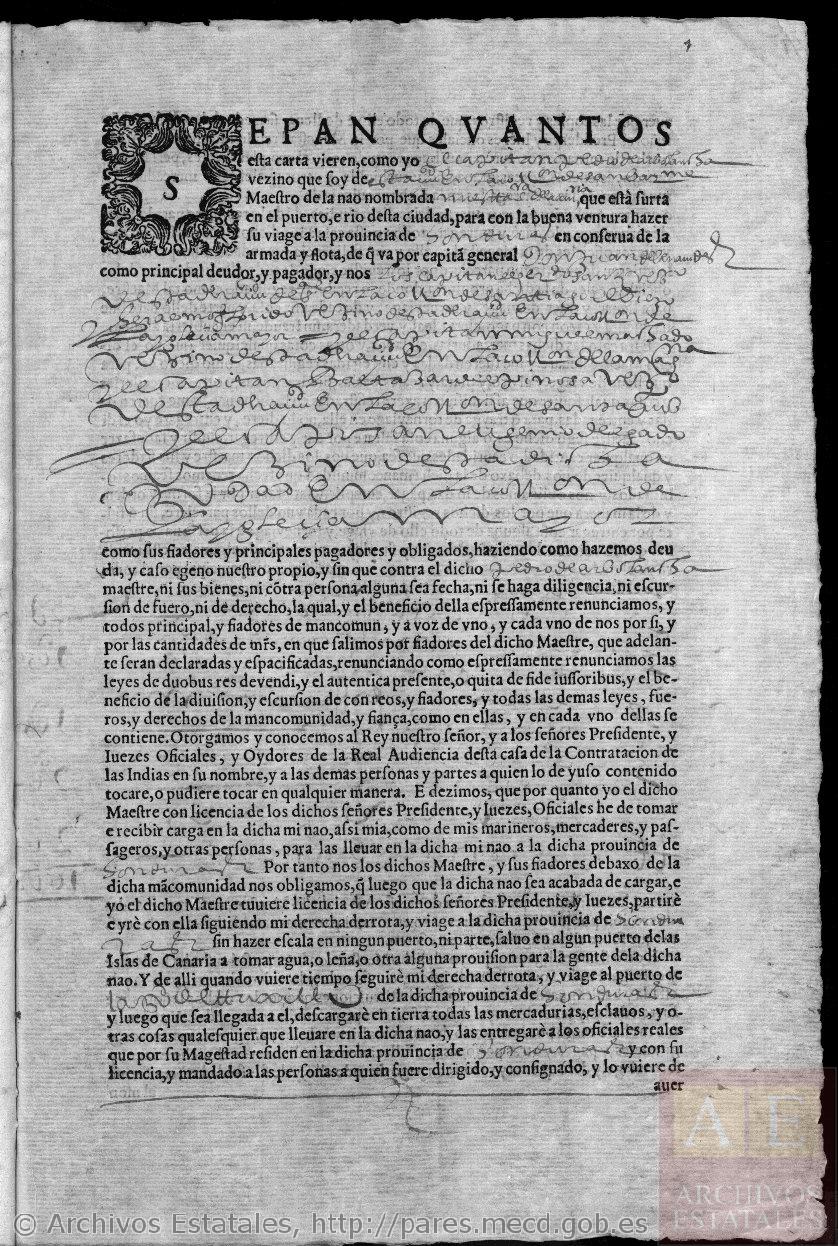 SEPAN QVANTOS
esta carta vieren, como yo el capitan pedro de arostansha
vezino que soy de
Maestro de la nao nombrada nuestra que està surta
en el puerto, e rio desta ciudad, para con la buena ventura hazer
su viage a la prouincia de Honduras en conserua de la
armada y flota, de q̃ va por capitã general
como principal deudor, y pagador, y nos
y el capitan miguel machado
vezino desta
y el capitan baltasar despinosa vezº
y el capitan eugenio delgado
vezino desta dicha
ciudad en la collon de
la yglesia mayor
como sus fiadores y principales pagadores y obligados, haziendo como hazemos deu
da, y caso egeno nuestro propio, y sin que contra el dicho pedro de arostansha
maestre, ni sus bienes, ni cõtra persona alguna sea fecha, ni se haga diligencia, ni escur-
sion de fuero, ni de derecho, la qual, y el beneficio della espressamente renunciamos, y
todos principal, y fiadores de mancomun, y a voz de vno, y cada vno de nos por si, y
por las cantidades de mrs̃, en que salimos por fiadores del dicho Maestre, que adelan-
te seran declaradas y espacificadas, renunciando como espressamente renunciamos las
leyes de duobus res devendi, y el autentica presente, o quita de fide iussoribus, y el be-
neficio de la diuision, y escursion de con reos, y fiadores, y todas las demas leyes, fue-
ros, y derechos de la mancomunidad, y fiança, como en ellas, y en cada vno dellas se
contiene. Otorgamos y conocemos al Rey nuestro señor, y a los señores Presidente, y
Iuezes Oficiales, y Oydores de la Real Audiencia desta casa de la Contratacion de
las Indias en su nombre, y a las demas personas y partes a quien lo de yuso contenido
tocare, o pudiere tocar en qualquier manera. E dezimos, que por quanto yo el dicho
Maestre con licencia de los dichos señores Presidente, y Iuezes, Oficiales he de tomar
e recibir carga en la dicha mi nao, assi mia, como de mis marineros, mercaderes, y pas-
sageros, y otras personas, para las lleuar en la dicha mi nao a la dicha prouincia de
Honduras Por tanto nos los dichos Maestre, y sus fiadores debaxo de la
dicha mãcomunidad nos obligamos, q̃ luego que la dicha nao sea acabada de cargar, e
yo el dicho Maestre tuuiere licencia de los dichos señores Presidente, y Iuezes, partirè
e yrè con ella siguiendo mi derecha derrota, y viage a la dicha prouincia de Hondu
ras sin hazer escala en ningun puerto, ni parte, saluo en algun puerto de las
Islas de Canaria a tomar agua, o leña, o otra alguna prouision para la gente de la dicha
nao. Y de alli quando vuiere tiempo seguirè mi derecha derrota, y viage al puerto de
de la dicha prouincia de Honduras
y luego que sea llegada a el, descargarè en tierra todas las mercadurias, esclauos, y o-
tras cosas qualesquier que lleuare en la dicha nao, y las entregarè a los oficiales reales
que por su Magestad residen en la dicha prouincia de Honduras y con su
licencia, y mandado a las personas a quien fuere dirigido, y consignado, y lo vuiere de
auer
AE
ARCHIVOS
ESTATALES
© Archivos Estatales, http://pares.mecd.gob.es